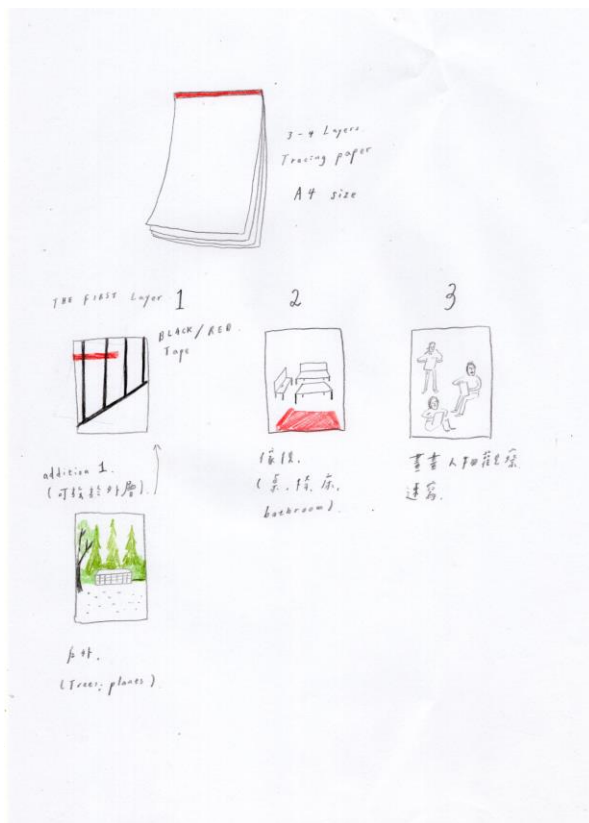 3-4 Layers.
Tracing paper
A4 size
THE FIRST Layer 1
2
3
BLACK/RED.
Tape
addition 1.
(桌、椅、床,
bathroom).
畫畫人物觀察
速寫.
戶外.
(Trees, plants)